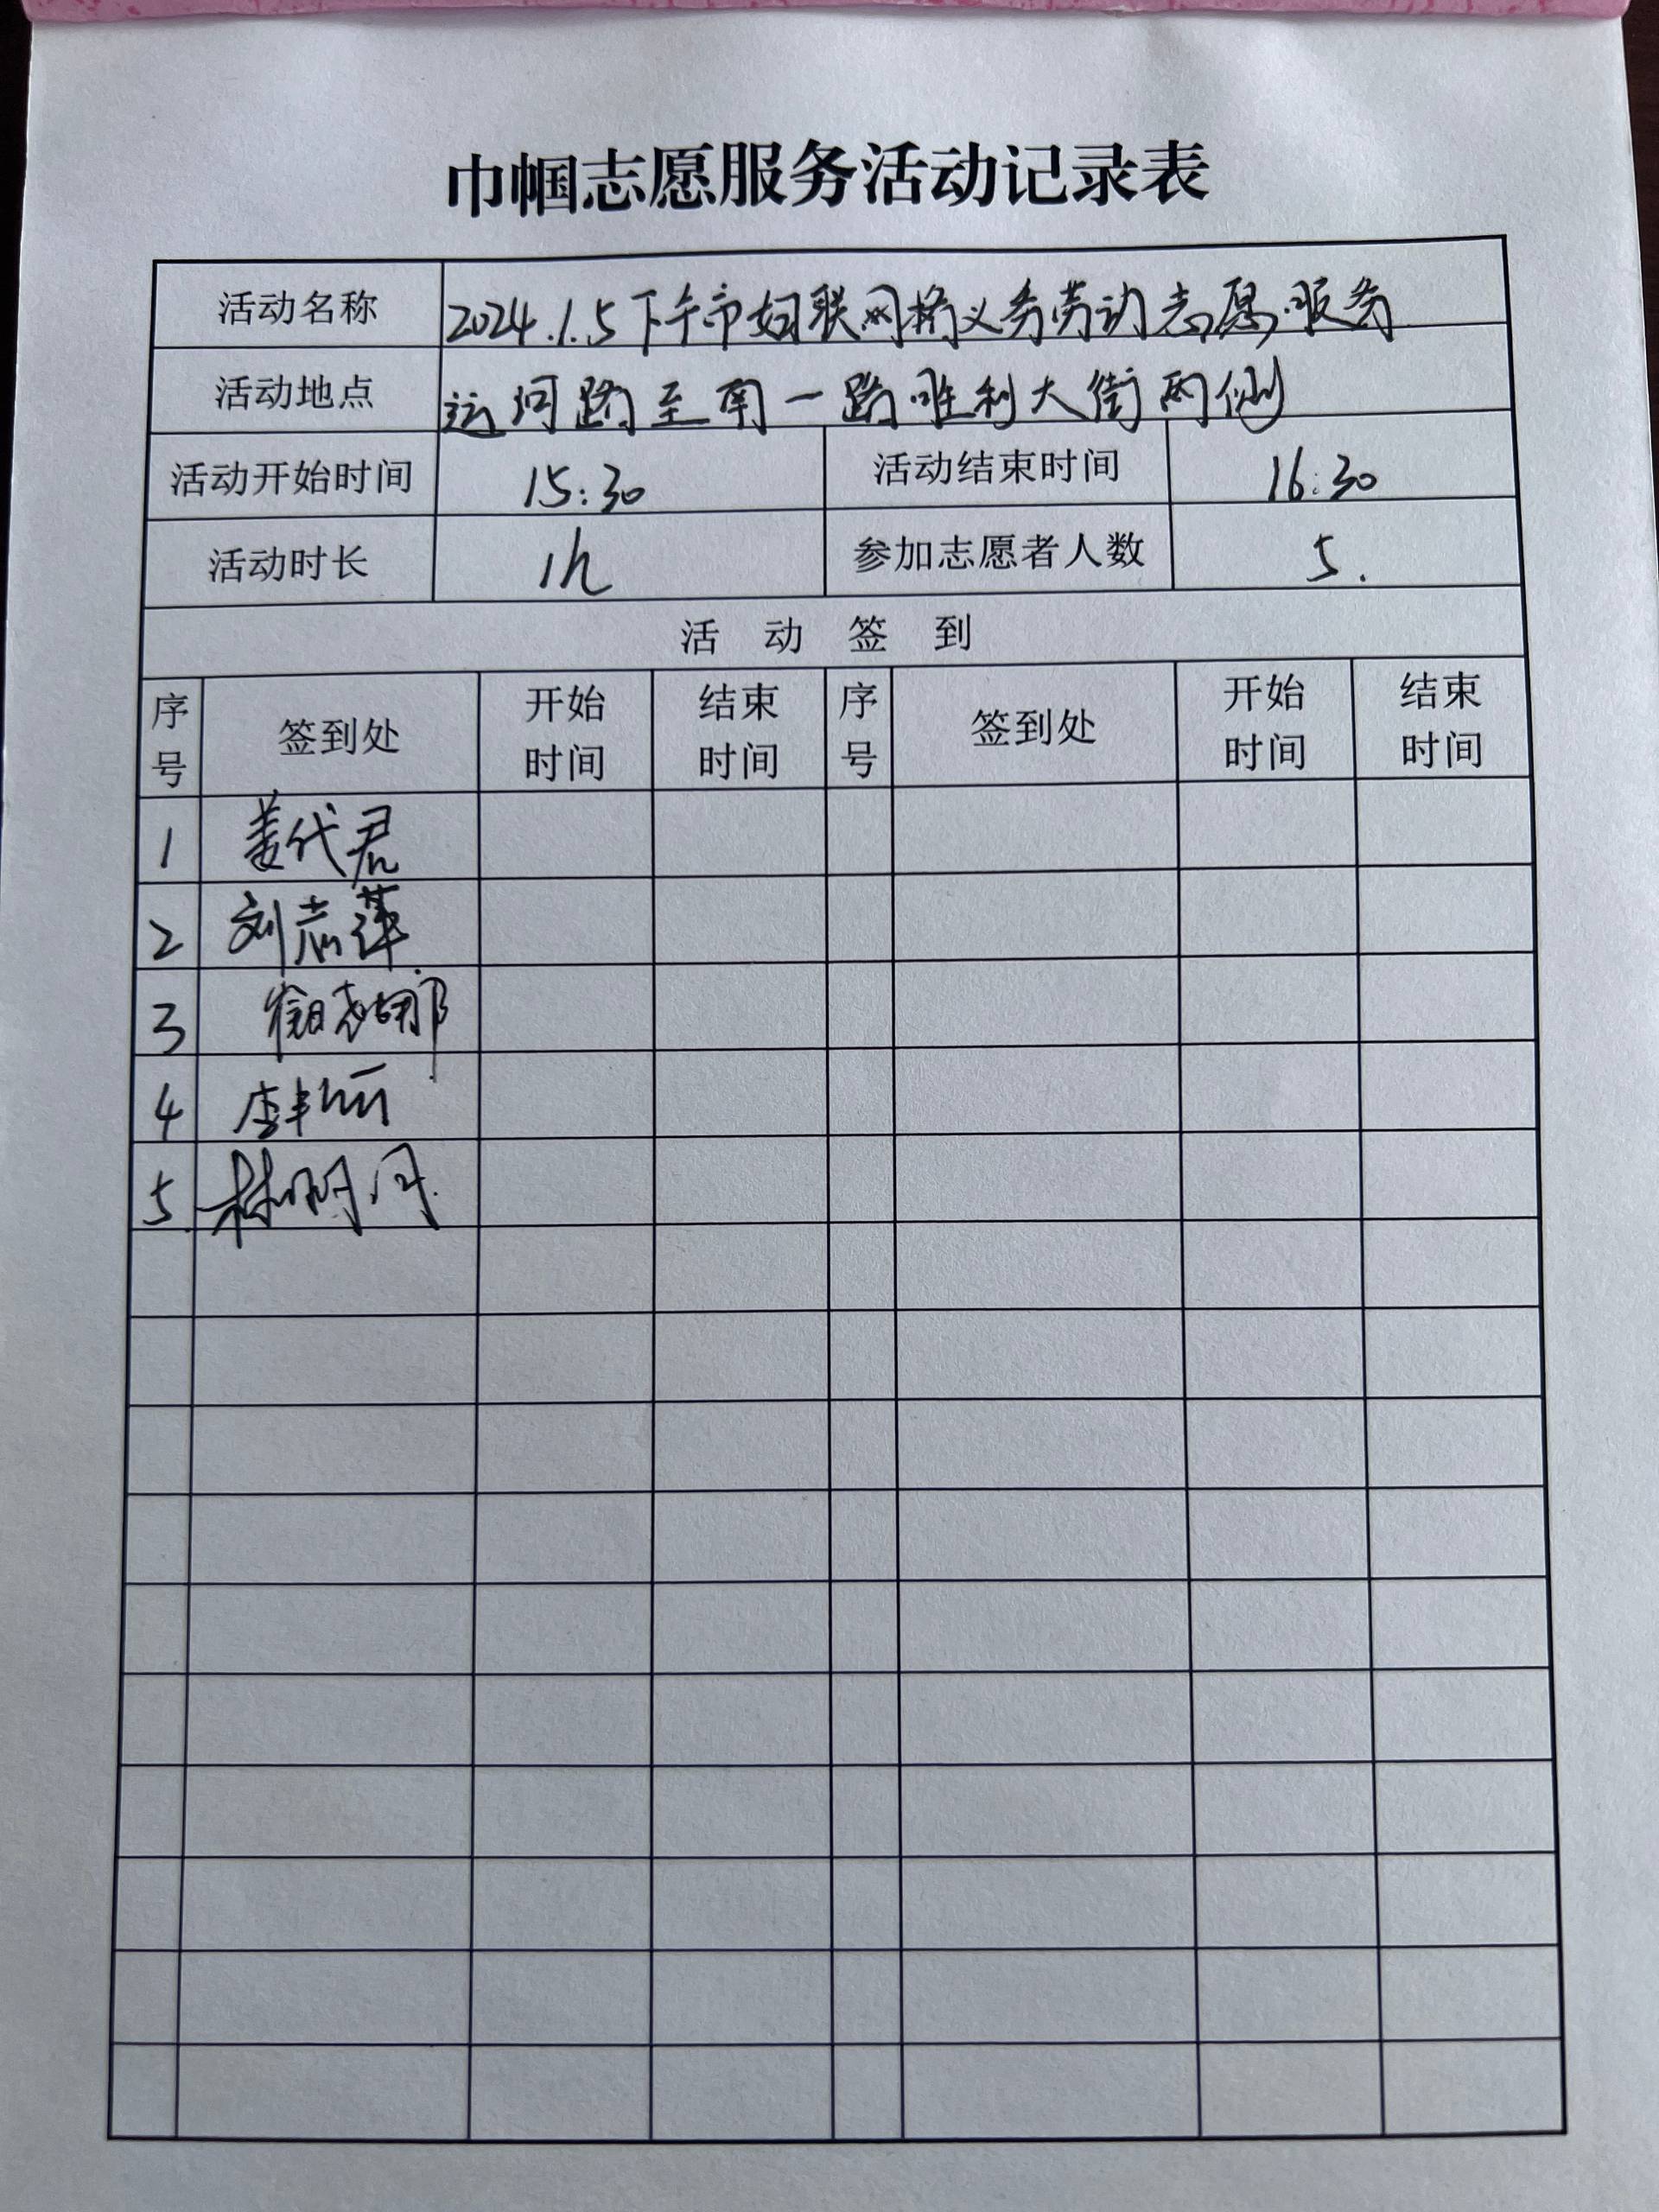 巾帼志愿服务活动记录表
活动名称 2024.1.5下午市妇联网格义务劳动志愿服务
活动地点 运河路至南一路胜利大街两侧
活动开始时间 15:30 活动结束时间 16:30
活动时长 1h 参加志愿者人数 5.
活动签到
序号 签到处 开始时间 结束时间 序号 签到处 开始时间 结束时间
1 姜代君
2 刘志萍
3
4 李艳丽
5